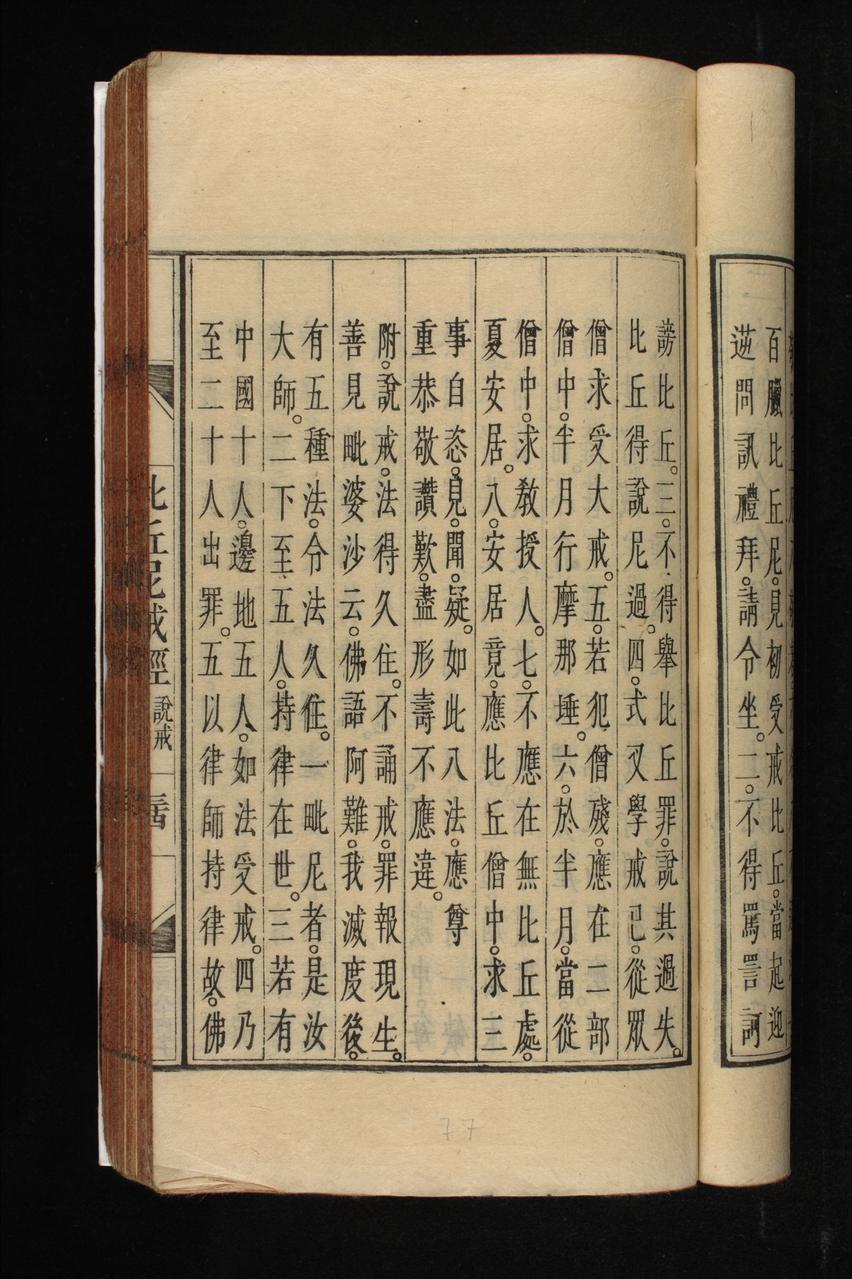 百臘比丘尼。見初受戒比丘。當起迎
逆問訊禮拜。請令坐。二。不得罵詈訶
謗比丘。三。不得舉比丘罪。說其過失。
比丘得說尼過。四。式叉學戒已。從眾
僧求受大戒。五。若犯僧殘。應在二部
僧中。半月行摩那埵。六。於半月。當從
僧中。求教授人。七。不應在無比丘處。
夏安居。八。安居竟。應比丘僧中。求三
事自恣。見。聞。疑。如此八法。應尊
重恭敬讚歎。盡形壽不應違。
附。說戒。法得久住。不誦戒。罪報現生。
善見毗婆沙云。佛語阿難。我滅度後。
有五種法。令法久住。一毗尼者。是汝
大師。二下至五人。持律在世。三若有
中國十人。邊地五人。如法受戒。四乃
至二十人出罪。五以律師持律故。佛
比丘尼戒經 說戒
77